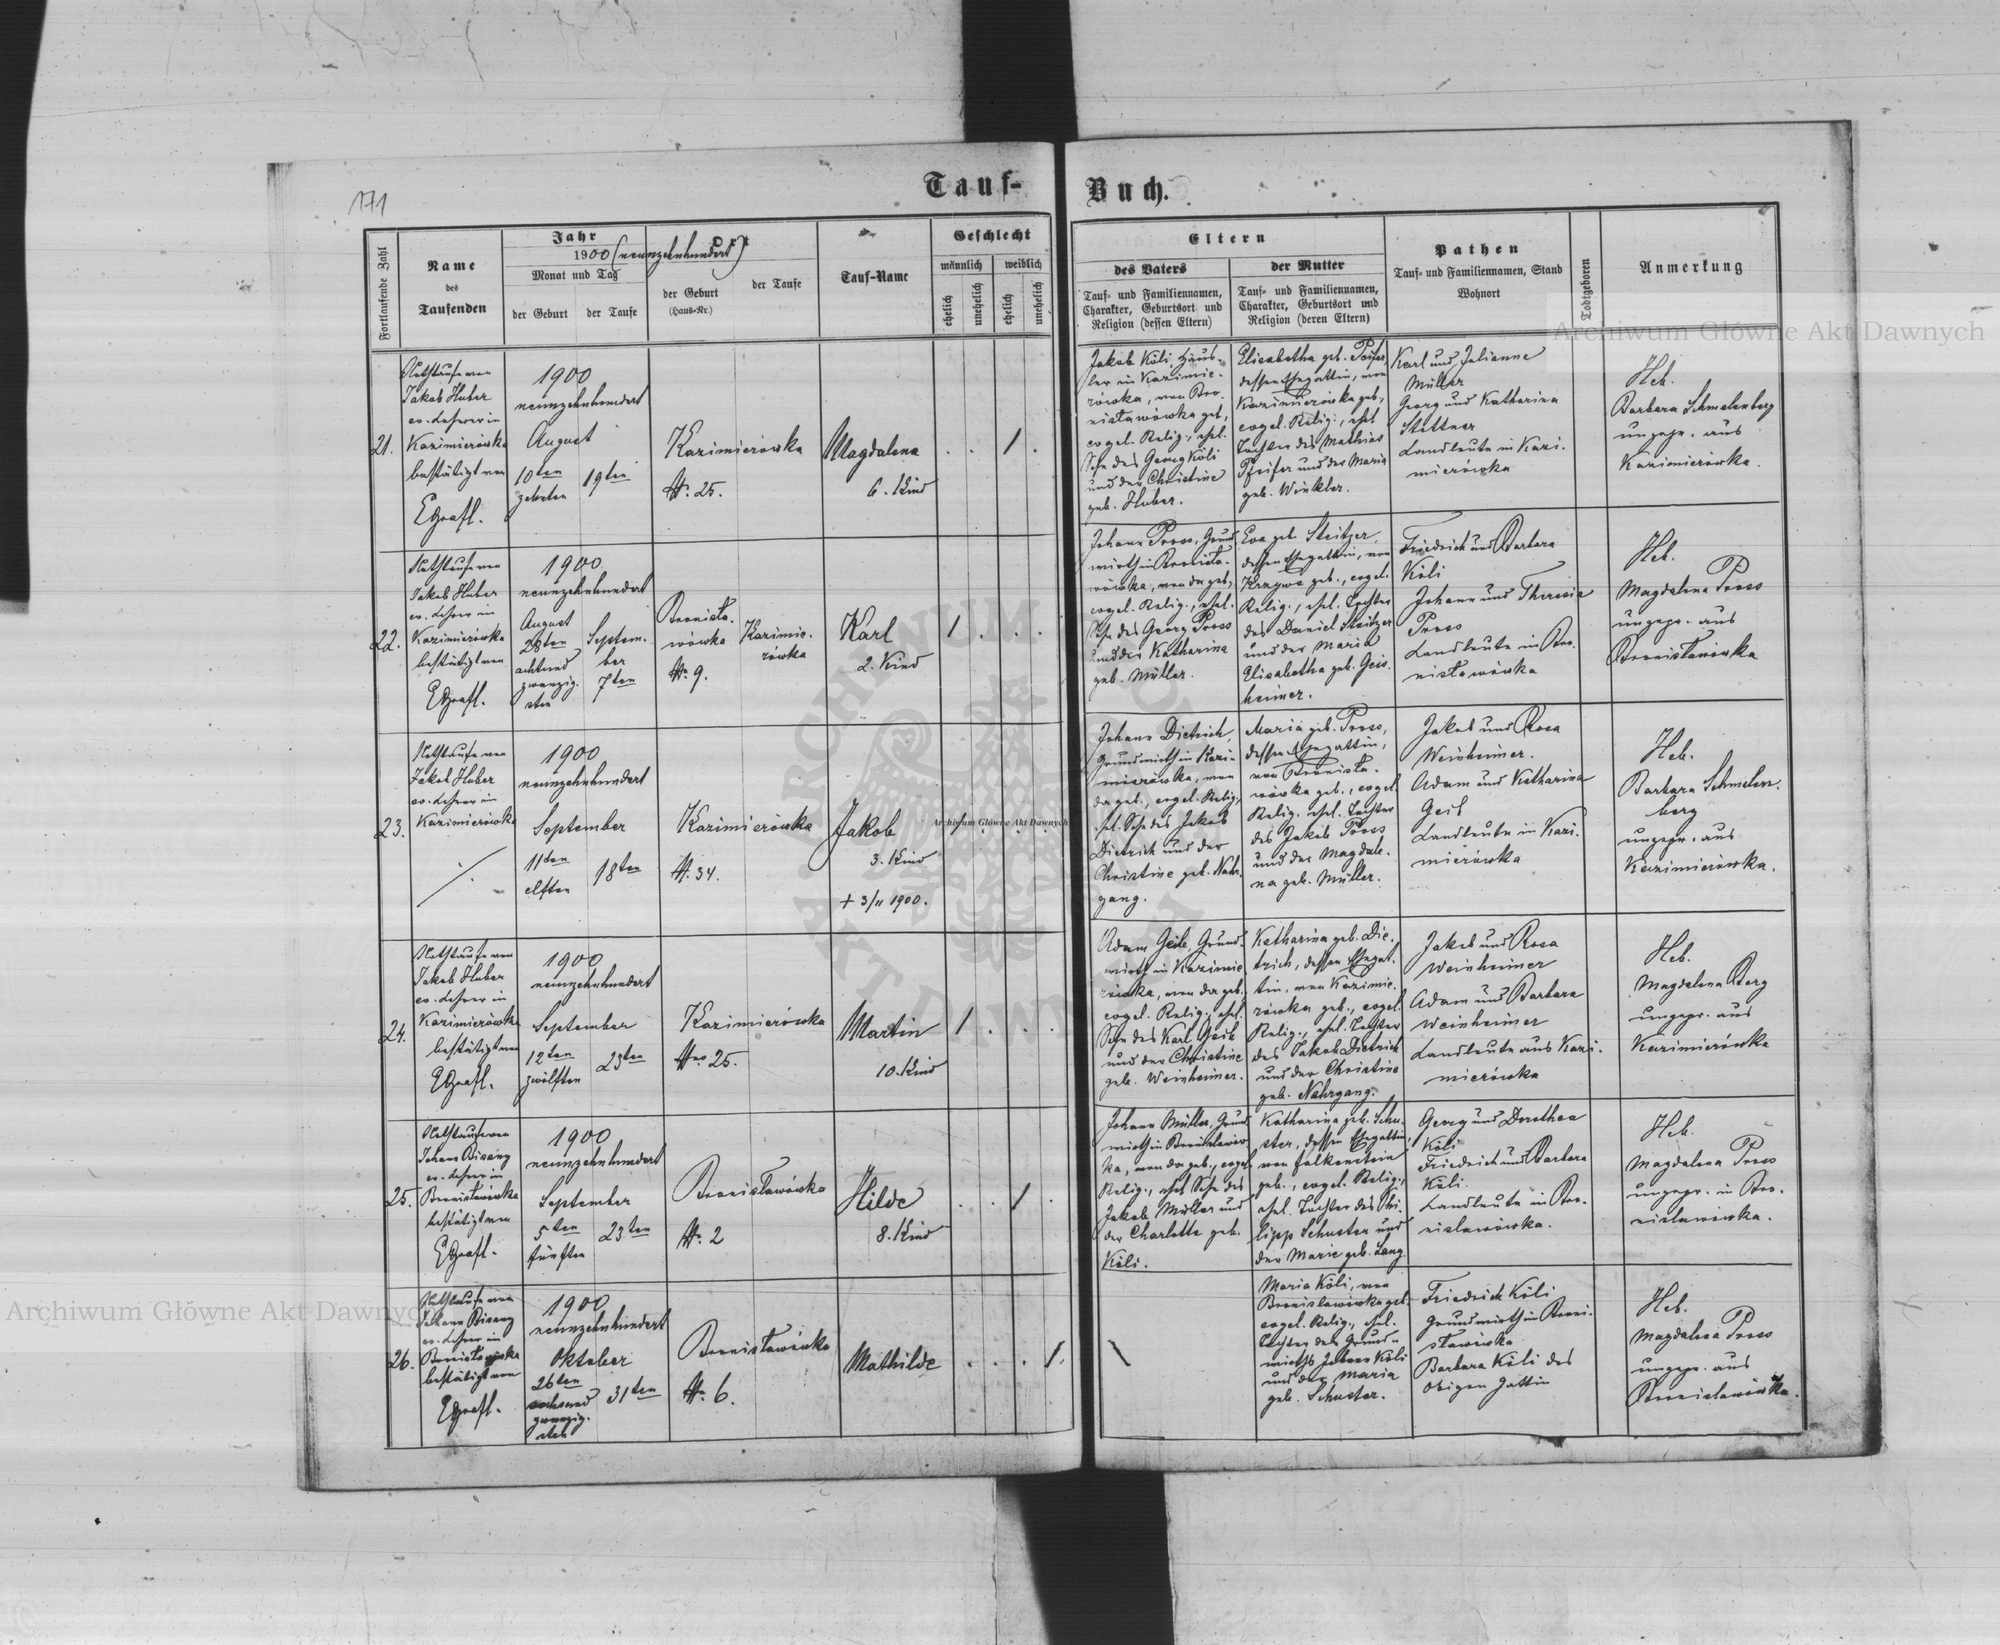 171
Tauf-
Buch.
Fortlaufende Zahl
Name
des
Taufenden
Jahr
1900 (neunzehnhundert)
Monat und Tag
der Geburt
der Taufe
Ort
der Geburt
(Haus-Nr.)
der Taufe
Tauf-Name
Geschlecht
männlich
weiblich
ehelich
unehelich
ehelich
unehelich
Eltern
des Vaters
Tauf- und Familiennamen,
Charakter, Geburtsort und
Religion (dessen Eltern)
der Mutter
Tauf- und Familiennamen,
Charakter, Geburtsort und
Religion (deren Eltern)
Pathen
Tauf- und Familiennamen, Stand
Wohnort
Todtgeboren
Anmerkung
21.
Nothtaufe von
Jakob Huber
ev. Lehrer in
Kazimierówka
bestätigt von
1900
neunzehnhundert
August
10ten
zehnten
19ten
Kazimierówka
Nr. 25.
Magdalena
6. Kind
Jakob Köli, Häus-
ler in Kazimie-
rówka, von Bro-
nisławówka geb.,
evgel. Relig., ehel.
Sohn des Georg Köli
und der Christine
geb. Huber.
Elisabetha geb. Pfeifer
dessen Ehegattin, von
Kazimierówka geb.,
evgel. Relig., ehel.
Tochter des Mathias
Pfeifer und der Maria
geb. Winkler.
Karl und Julianna
Müller
Georg und Katharina
Stettner
Landleute in Kazi-
mierówka
Heb.
Barbara Schmalenberg
ungepr. aus
Kazimierówka.
22.
Nothtaufe von
Jakob Huber
ev. Lehrer in
Kazimierówka
bestätigt von
1900
neunzehnhundert
August
28ten
achtund
zwanzig-
sten
Septem-
ber
7ten
Bronisła-
wówka
Nr. 9.
Kazimie-
rówka
Karl
2. Kind
Johann Pross, Grund-
wirth in Bronisła-
wówka, von da geb.,
evgel. Relig., ehel.
Sohn des Georg Pross
und der Katharina
geb. Müller.
Eva geb. Steitzer,
dessen Ehegattin, von
Krzywe geb., evgel.
Relig., ehel. Tochter
des Daniel Steitzer
und der Maria
Elisabetha geb. Geis-
heimer.
Friedrich und Barbara
Köli
Johann und Theresia
Pross
Landleute in Bro-
nisławówka
Heb.
Magdalena Pross
ungepr. aus
Bronisławówka
23.
Nothtaufe von
Jakob Huber
ev. Lehrer in
Kazimierówka
1900
neunzehnhundert
September
11ten
elften
18ten
Kazimierówka
Nr. 34.
Jakob
3. Kind
+ 3/11 1900.
Johann Dietrich,
Grundwirth in Kazi-
mierówka, von
da geb., evgel. Relig.,
ehel. Sohn des Jakob
Dietrich und der
Christine geb. Nahr-
gang.
Maria geb. Pross,
dessen Ehegattin,
von Bronisła-
wówka geb., evgel.
Relig. ehel. Tochter
des Jakob Pross
und der Magdale-
na geb. Müller.
Jakob und Rosa
Weinheimer.
Adam und Katharina
Geib
Landleute in Kazi-
mierówka
Heb.
Barbara Schmalen-
berg
ungepr. aus
Kazimierówka.
24.
Nothtaufe von
Jakob Huber
ev. Lehrer in
Kazimierówka
bestätigt von
1900
neunzehnhundert
September
12ten
zwölften
23ten
Kazimierówka
Nro 25.
Martin
10. Kind
Adam Geib, Grund-
wirth in Kazimie-
rówka, von da geb.
evgel. Relig., ehel.
Sohn des Karl Geib
und der Christine
geb. Weinheimer.
Katharina geb. Die-
trich, dessen Ehegat-
tin, von Kazimie-
rówka geb., evgel.
Relig., ehel. Tochter
des Jakob Dietrich
und der Christine
geb. Nahrgang.
Jakob und Rosa
Weinheimer
Adam und Barbara
Weinheimer
Landleute aus Kazi-
mierówka
Heb.
Magdalena Berg
ungepr. aus
Kazimierówka
25.
Nothtaufe von
Johann Bisanz
ev. Lehrer in
Bronisławówka
bestätigt von
1900
neunzehnhundert
September
5ten
fünften
23ten
Bronisławówka
Nr. 2
Hilde
8. Kind
Johann Müller, Grund-
wirth in Bronisławów-
ka, von da geb., evgel.
Relig., ehel. Sohn des
Jakob Müller und
der Charlotte geb.
Köli.
Katharina geb. Schu-
ster, dessen Ehegattin,
von Falkenstein
geb., evgel. Relig.,
ehel. Tochter des Phi-
lipp Schuster und
der Marie geb. Lang.
Georg und Dorothea
Köli
Friedrich und Barbara
Köli.
Landleute in Bro-
nisławówka.
Heb.
Magdalena Pross
ungepr. in Bro-
nisławówka.
26.
Nothtaufe von
Johann Bisanz
ev. Lehrer in
Bronisławówka
bestätigt von
1900
neunzehnhundert
Oktober
26ten
sechsund
zwanzig-
sten
31ten
Bronisławówka
Nr. 6.
Mathilde
Maria Köli, von
Bronisławówka geb.
evgel. Relig., ehel.
Tochter des Grund-
wirths Johann Köli
und der Maria
geb. Schuster.
Friedrich Köli
Grundwirth in Broni-
sławówka
Barbara Köli des
obigen Gattin
Heb.
Magdalena Pross
ungepr. aus
Bronisławówka.
Archiwum Główne Akt Dawnych
Archiwum Główne Akt Dawnych
Archiwum Główne Akt Dawnych